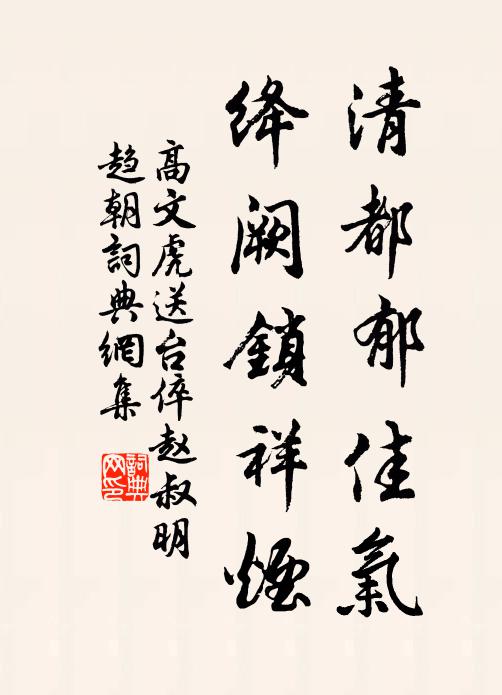 清都郁佳氣
绛阙鎖祥煙
高文虎送台倅赵叔明
趋朝詞典網集
詞典网印